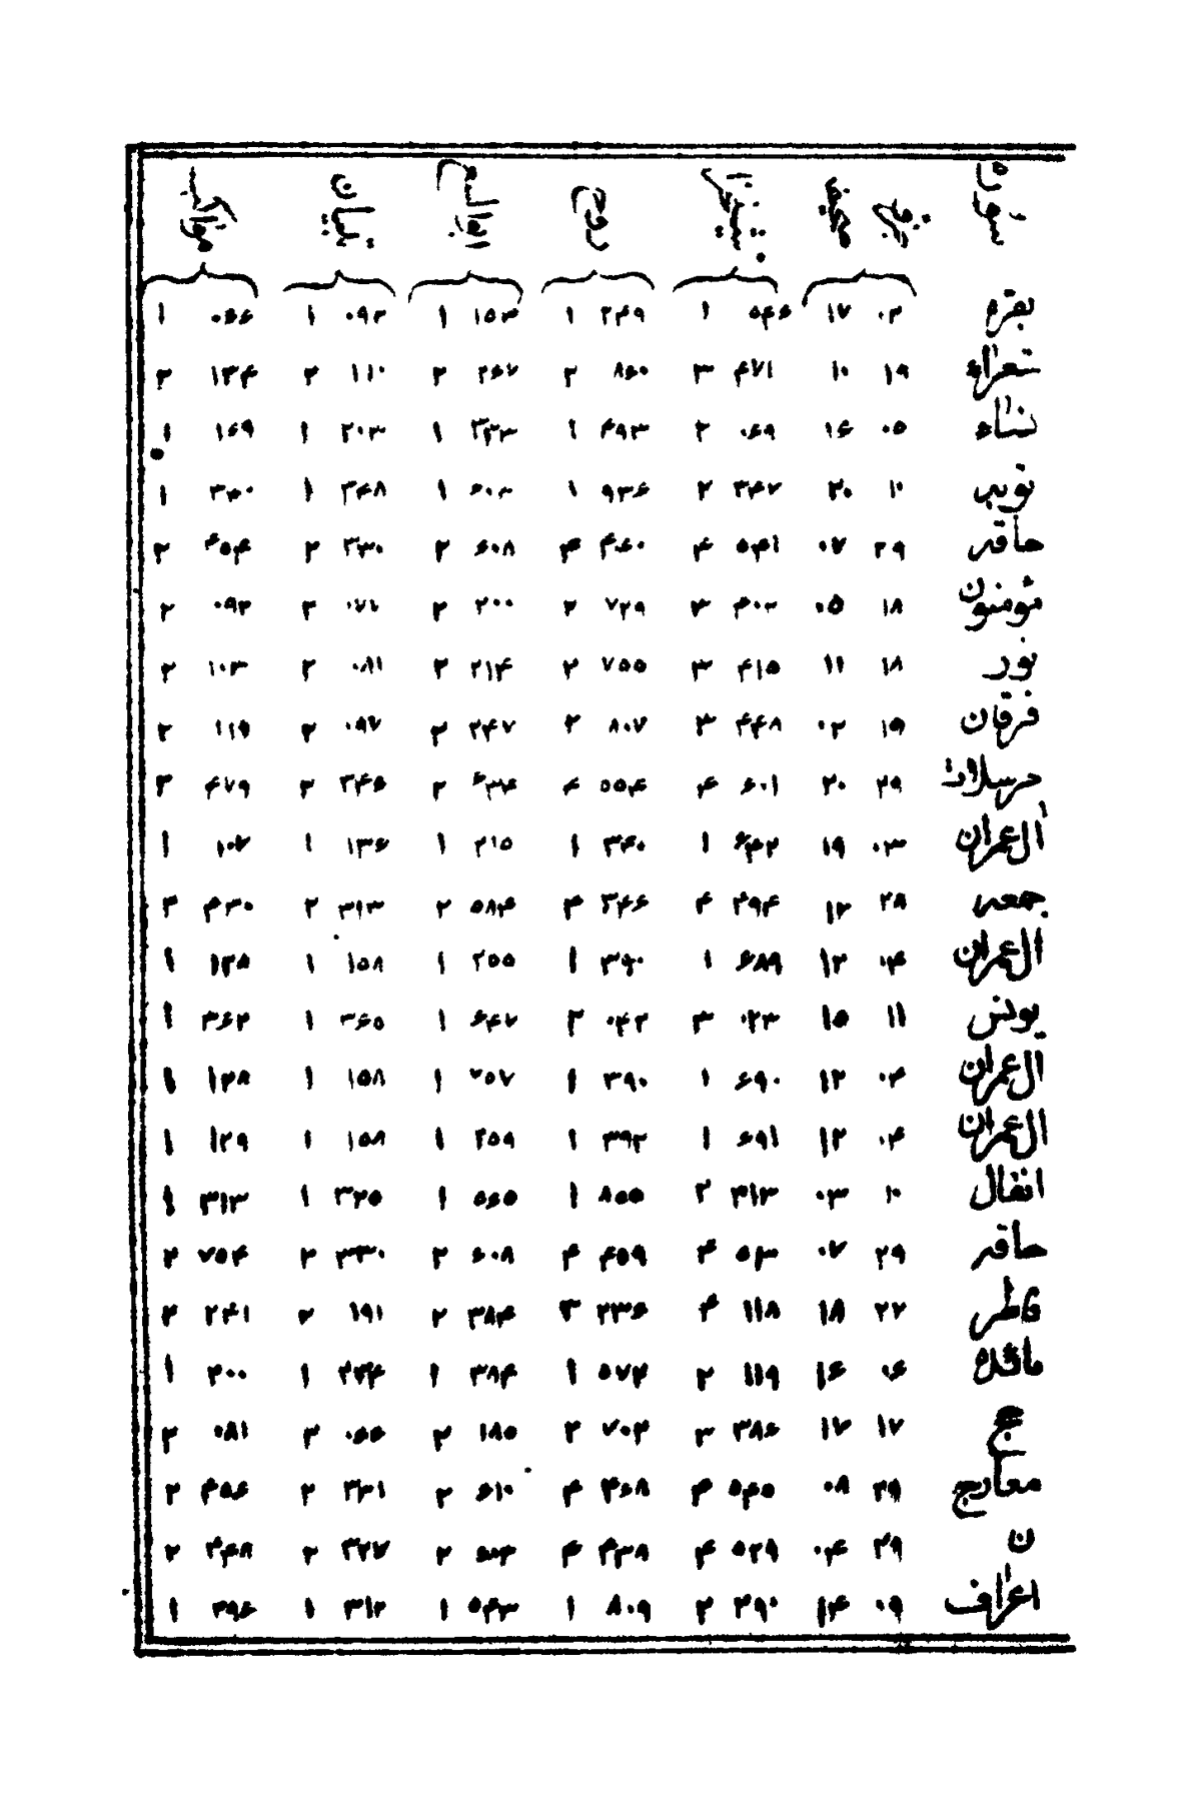 سوره جزء صحيفه روح تبيان مواكب
بقره ۰۲ ۱۷ ۵۴۶ ۱ ۲۴۹ ۱ ۱۵۳ ۱ ۰۹۲ ۱ ۰۶۶ ۱
شعراء ۱۹ ۱۰ ۴۷۱ ۳ ۸۶۰ ۲ ۲۶۷ ۲ ۱۱۰ ۲ ۱۳۴ ۲
نساء ۰۵ ۱۶ ۰۶۹ ۲ ۴۹۳ ۱ ۳۳۳ ۱ ۲۰۳ ۱ ۱۶۹ ۱
توبه ۱۰ ۲۰ ۳۴۷ ۲ ۹۳۶ ۱ ۶۰۳ ۱ ۳۴۸ ۱ ۳۴۰ ۱
حاقه ۲۹ ۰۷ ۵۴۱ ۴ ۴۶۰ ۴ ۶۰۸ ۲ ۳۳۰ ۲ ۴۵۴ ۲
مؤمنون ۱۸ ۰۵ ۴۰۲ ۳ ۷۲۹ ۲ ۲۰۰ ۲ ۰۷۶ ۲ ۰۹۲ ۲
نور ۱۸ ۱۱ ۴۱۵ ۳ ۷۵۵ ۲ ۲۱۴ ۲ ۰۸۱ ۲ ۱۰۳ ۲
فرقان ۱۹ ۰۲ ۴۴۸ ۳ ۸۰۷ ۲ ۲۴۷ ۲ ۰۹۷ ۲ ۱۱۹ ۲
مرسلات ۲۹ ۲۰ ۶۰۱ ۴ ۵۵۴ ۴ ۶۳۴ ۲ ۳۴۶ ۲ ۴۷۹ ۲
آل عمران ۰۳ ۱۹ ۶۴۲ ۱ ۳۴۰ ۱ ۲۱۵ ۱ ۱۳۶ ۱ ۱۰۷ ۱
جمعه ۲۸ ۱۲ ۴۹۴ ۴ ۳۴۶ ۴ ۵۸۴ ۲ ۳۱۳ ۲ ۴۳۰ ۲
ال عمران ۰۴ ۱۲ ۶۸۹ ۱ ۳۹۰ ۱ ۲۵۵ ۱ ۱۵۸ ۱ ۱۲۸ ۱
يونس ۱۱ ۱۵ ۰۲۳ ۳ ۰۴۲ ۲ ۶۴۷ ۱ ۳۶۵ ۱ ۳۶۲ ۱
ال عمران ۰۴ ۱۲ ۶۹۰ ۱ ۳۹۰ ۱ ۲۵۷ ۱ ۱۵۸ ۱ ۱۲۸ ۱
ال عمران ۰۴ ۱۲ ۶۹۱ ۱ ۳۹۲ ۱ ۲۵۹ ۱ ۱۵۸ ۱ ۱۲۹ ۱
انفال ۱۰ ۰۳ ۴۱۳ ۲ ۸۵۵ ۱ ۵۶۵ ۱ ۳۲۵ ۱ ۳۱۳ ۱
حاقه ۲۹ ۰۷ ۵۳ ۴ ۴۵۹ ۴ ۶۰۸ ۲ ۳۳۰ ۲ ۷۵۴ ۲
فاطر ۲۲ ۱۸ ۱۱۸ ۴ ۲۳۶ ۳ ۳۸۴ ۲ ۱۹۱ ۲ ۲۴۱ ۲
مائده ۰۶ ۱۶ ۱۱۹ ۲ ۵۷۲ ۱ ۳۸۴ ۱ ۲۳۴ ۱ ۲۰۰ ۱
حج ۱۷ ۱۷ ۳۸۶ ۳ ۷۰۲ ۲ ۱۸۵ ۲ ۰۶۶ ۲ ۰۸۱ ۲
معارج ۲۹ ۰۸ ۵۴۵ ۴ ۴۶۸ ۴ ۶۱۰ ۲ ۳۳۱ ۲ ۴۵۶ ۲
ن ۲۹ ۰۴ ۵۲۹ ۴ ۴۳۸ ۴ ۶۰۳ ۲ ۳۲۷ ۲ ۴۴۸ ۲
اعراف ۰۹ ۱۴ ۲۹۰ ۲ ۸۰۹ ۱ ۵۴۳ ۱ ۳۱۲ ۱ ۲۹۶ ۱